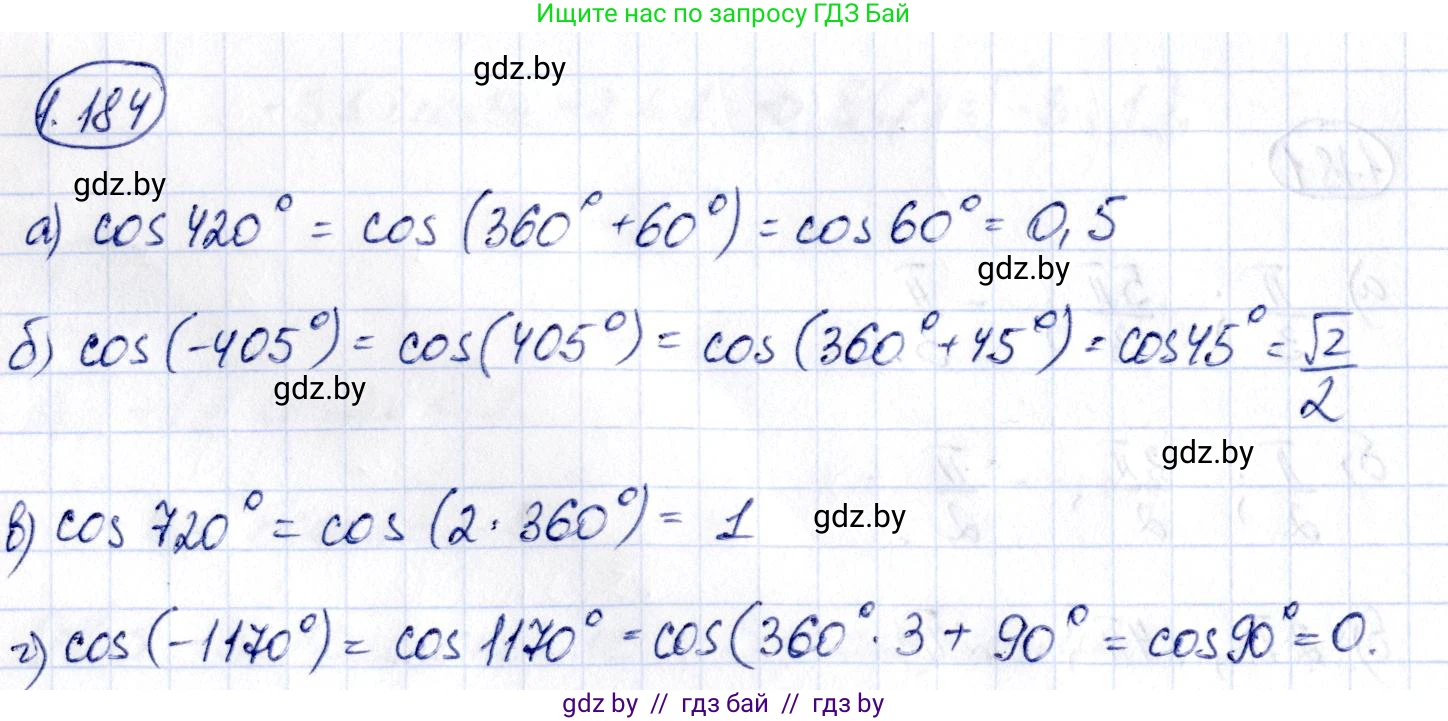 Ищите нас по запросу ГДЗ Бай
gdz.by
1.184
gdz.by
а) cos 420° = cos (360° + 60°) = cos 60° = 0,5
gdz.by
б) cos (-405°) = cos (405°) = cos (360° + 45°) = cos 45° = √2/2
gdz.by
gdz.by
в) cos 720° = cos (2 · 360°) = 1
gdz.by
г) cos (-1170°) = cos 1170° = cos (360° · 3 + 90° = cos 90° = 0.
gdz by // гдз бай // гдз by